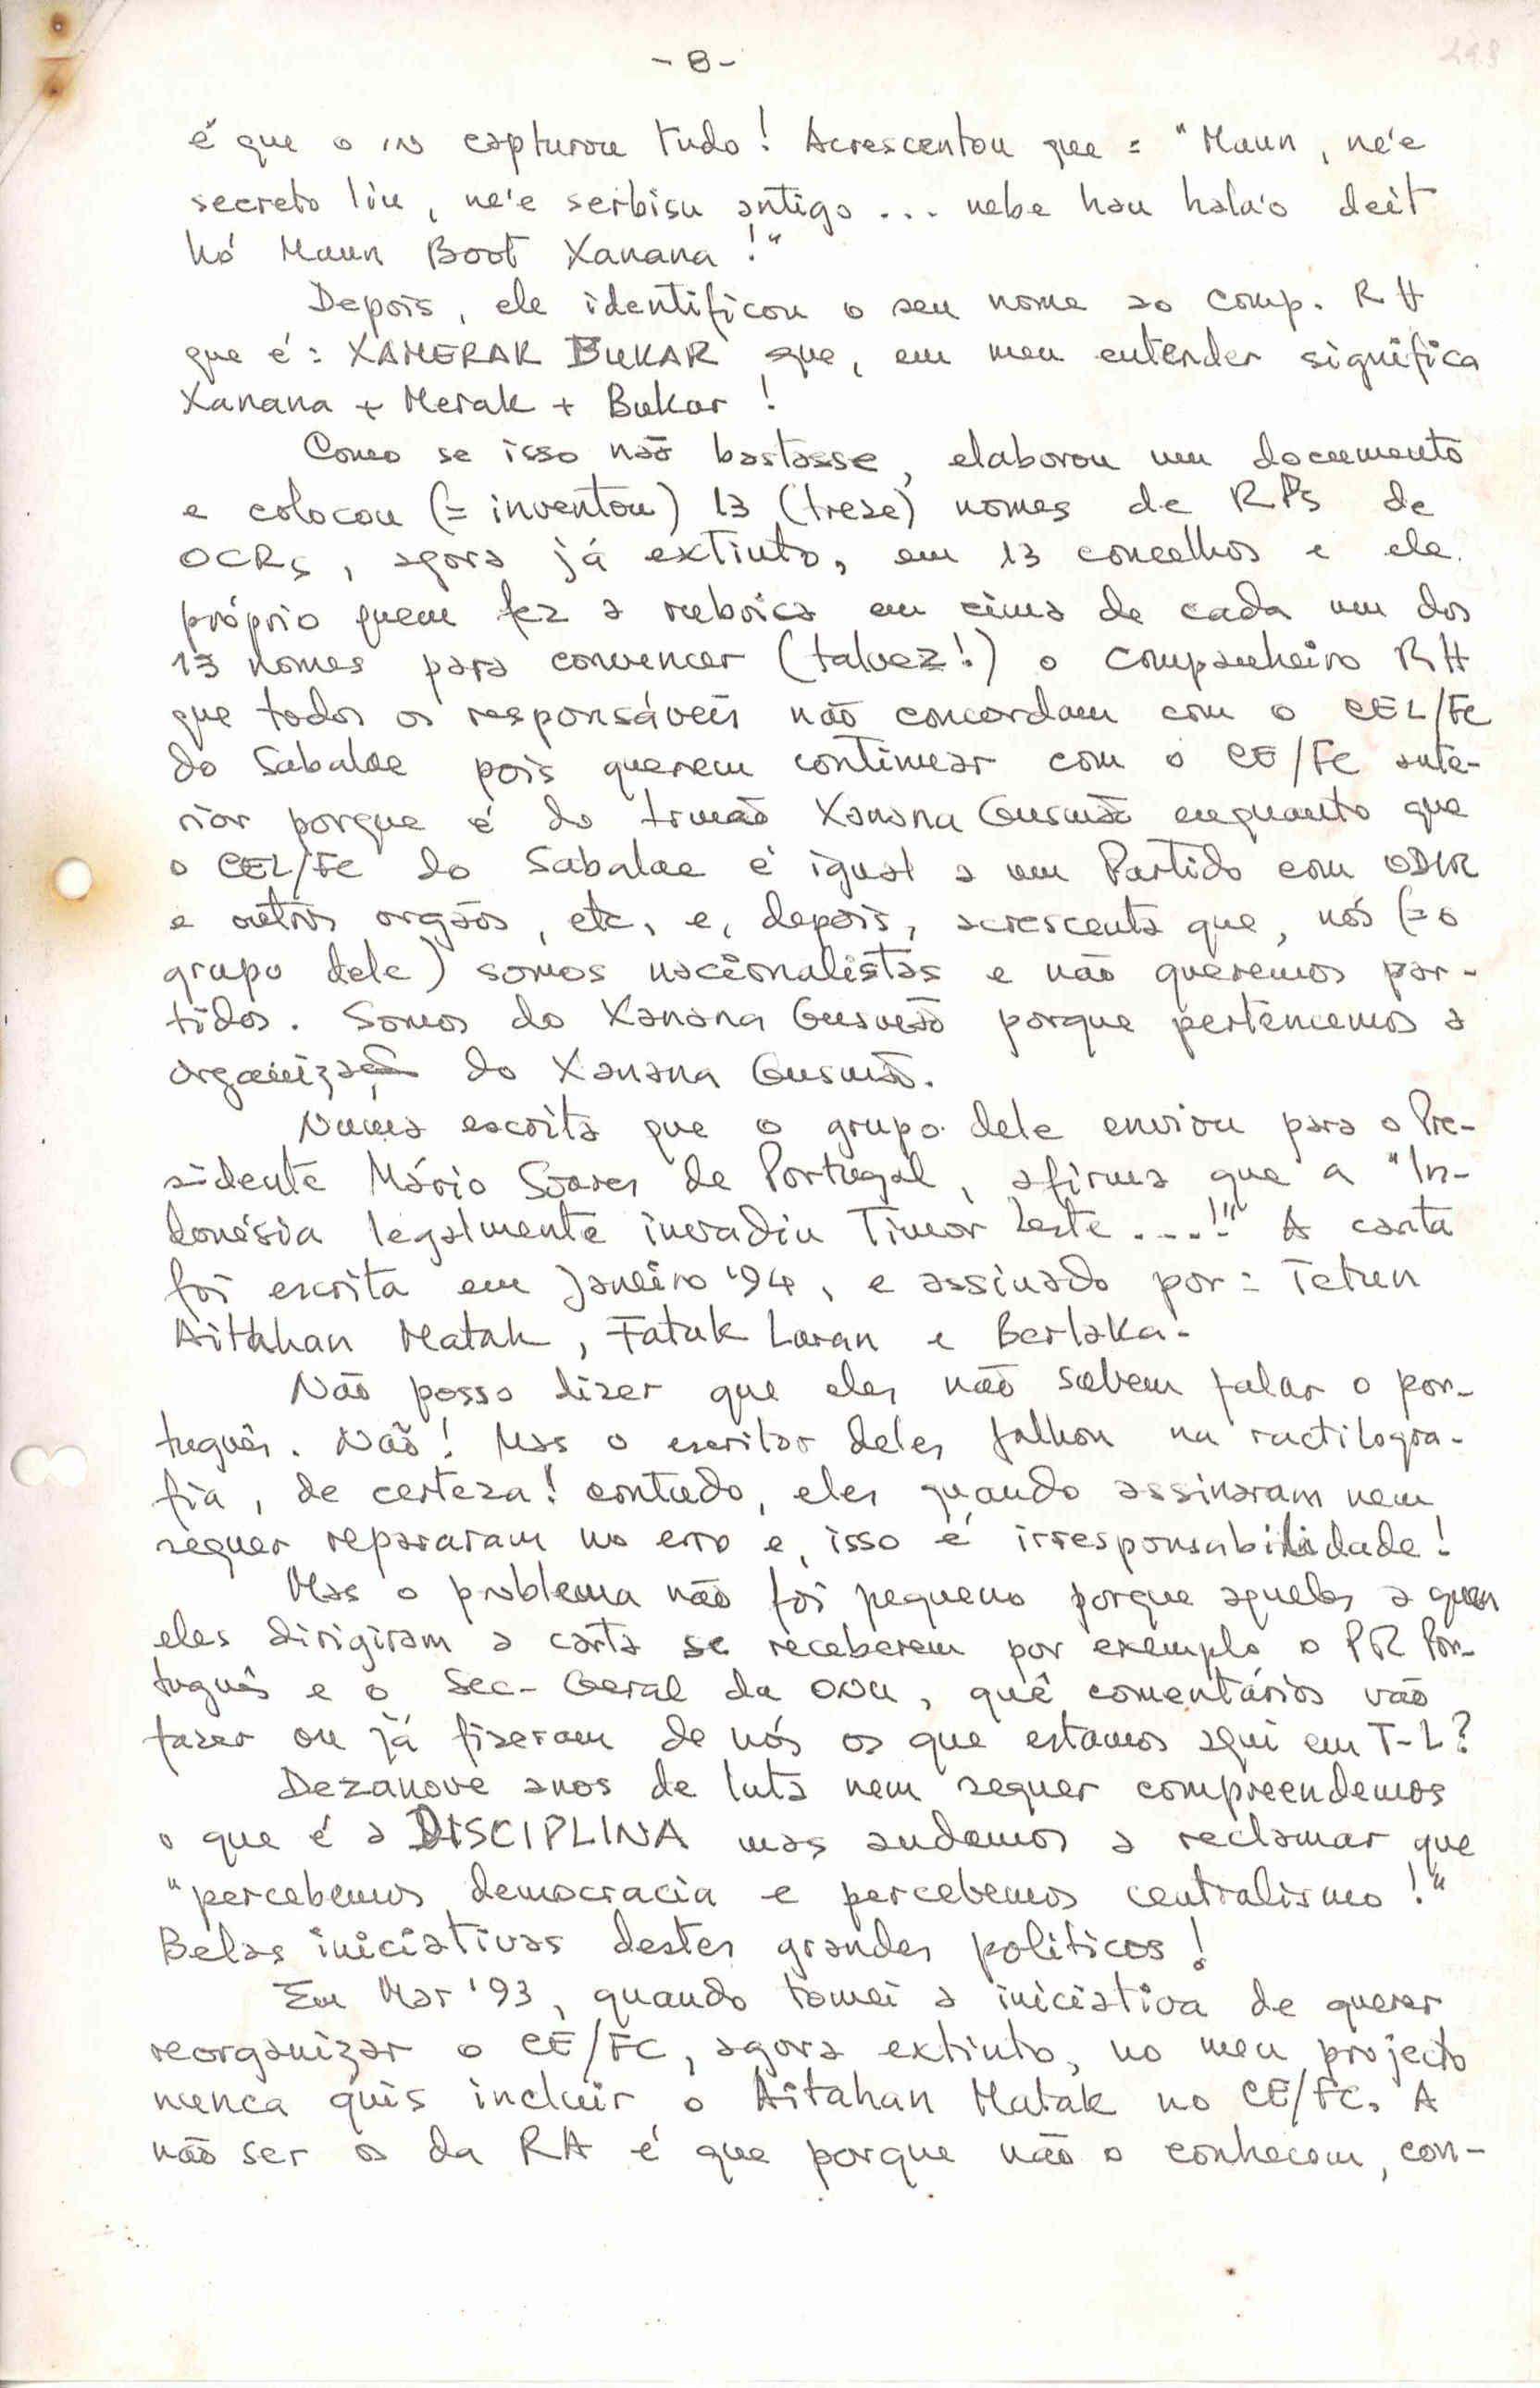 - 8 -
é que o in capturou tudo! Acrescentou que = "Maun, né'e
secreto liu, ne'e serbisu antigo ... nebe hau hala'o deit
hó Maun Boot Xanana !"
Depois, ele identificou o seu nome ao comp. RH
que é: XAMERAK BUKAR que, em meu entender significa
Xanana + Merak + Bukar !
Como se isso não bastasse, elaborou um documento
e colocou (= inventou) 13 (treze) nomes de RPs de
OCRs, agora já extinto, em 13 concelhos e ele
próprio quem fez a rubrica em cima de cada um dos
13 nomes para convencer (talvez!) o companheiro RH
que todos os responsáveis não concordam com o CEL/FC
do Sabalae pois querem continuar com o CE/FC ante-
rior porque é do Irmão Xanana Gusmão enquanto que
o CEL/FC do Sabalae é igual a um Partido com ODIR
e outros orgãos, etc, e, depois, acrescenta que, nós (=o
grupo dele) somos nacionalistas e não queremos par-
tidos. Somos do Xanana Gusmão porque pertencemos a
organização do Xanana Gusmão.
Numa escrita que o grupo dele enviou para o Pre-
sidente Mário Soares de Portugal, afirma que a "In-
donésia legalmente invadiu Timor Leste ...!" A carta
foi escrita em Janeiro '94, e assinado por = Tetun
Aitahan Matak, Fatuk Laran e Berlaka.
Não posso dizer que eles não sabem falar o por-
tuguês. Não! Mas o escritor deles falhou na ractilogra-
fia, de certeza! contudo, eles quando assinaram nem
sequer repararam no erro e, isso é irresponsabilidade!
Mas o problema não foi pequeno porque aqueles a quem
eles dirigiram a carta se receberem por exemplo o PR Por-
tuguês e o Sec-Geral da ONU, quê comentários vão
fazer ou já fizeram de nós os que estamos aqui em T-L?
Dezanove anos de luta nem sequer compreendemos
o que é a DISCIPLINA mas andamos a reclamar que
"percebemos democracia e percebemos centralismo !"
Belas iniciativas destes grandes politicos !
Em Mar '93, quando tomei a iniciativa de querer
reorganizar o CE/FC, agora extinto, no meu projecto
nunca quis incluir o Aitahan Matak no CE/FC. A
não ser os da RA é que porque não o conhecem, con-